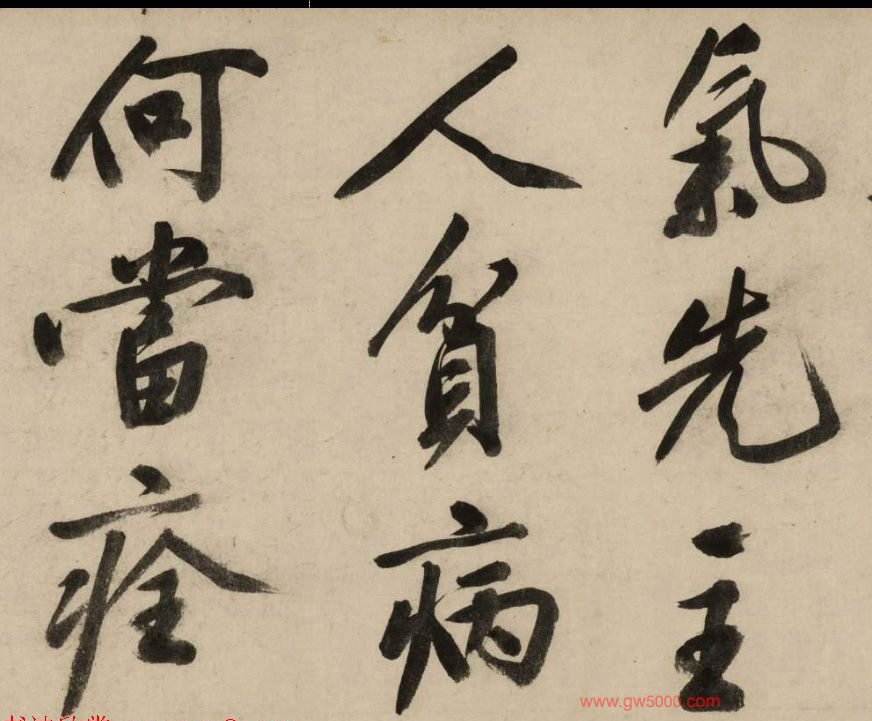 氣先主
人貧病
何當痊
www.gw5000.com